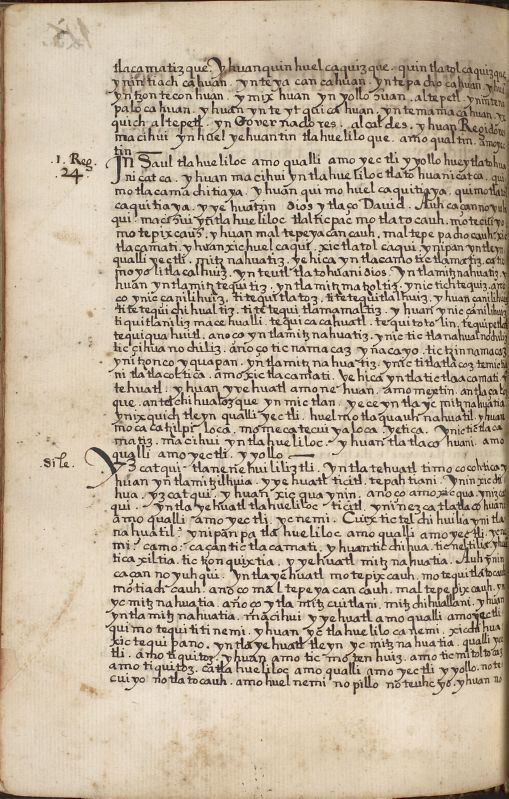 tlacamatizque. yhuan quin huel caquizque. quin tlatol caquizque
ynin tiach cahuan. yn te ya can cahuan. yn te pa cho cahuan. yhuel
yn tzon te con huan. y nix huan yn yollo huan. al tepetl. ynin te na
palo ca huan. yhuan yn te yt qui ca huan. yn te ma ma ca huan. yx
quich al tepetl. yn Governadores. al cal des. y huan Regidores
ma cihui yn huel ye huan tin tla hue li lo que. amo qual tin. amo yec
tin
1. Reg. 24.
In Saul tla hue liloc amo qualli amo yec tli y yollo huey tla to hua
ni cat ca. y huan ma ci hui yn tla hue liloc tla to huani catca. qui
mo tla ca ma chi tiaya. y huan qui mo huel ca qui tiaya. qui mo tla tol
ca qui tiaya. y ye huatzin Dios y tlaço David. Auh ca çan no yuh
qui. ma ci hui yn tla hue liloc tlal tic pac mo tla to cauh. mo tecuiyo
mo te pix cauh. y huan mal te pe ya can cauh. mal te pe pa cho cauh. xic
tla ca mati. y huan xic huel caqui. xic tla tol ca qui. yni pan yn tleyn
qualli yec tli. mitz na huatiz. ye hica yn tla camo tic tla matiz. ca tic
mo yo li tla cal huiz. yn teutl tla to huani dios. yn tla mitz na huatiz. y
huan yn tla mitz te qui tiz. yn tla mitz ma tol tiz. ynic tich te quiz. amo
co ynic ca nil i huiz. ti te qui tla toz. ti te te qui tlal huiz. y huan ca nil i huiz
ti te te qui chi hual tiz. ti te te qui tla ma mal tiz. y huan ynic ca nil i huiz
ti qui tla ni liz ma ce hualli. te qui ca ca huatl. te qui to to lin. te qui pe tlatl
te qui qua huitl. ano ço yn tla mitz na huatiz. ynic tic tla na hual no chiliz
tic çi hua no chiliz. ano ço tic na ma caz y ña ca yo. tic tzin na ma caz
yni tzon co y qua pan. yn tla mitz na hua tiz. ynic ti tla tla coz te mic ti a
ni tla tla col tica. amo xic tla ca mati. ye hica yn tla tic tla a ca mati. y
te huatl. y huan y ye huatl amo ne huan. amo mextin. an tla ca lo
que. an te chi hua loz que yn mic tlan. ye ce yn tla yc mitz na hua tia
ynix quich tleyn qualli yec tli. huel mo tla quauh na huatil. y huan
mo ca ca tilpi loca. mo me ca te cui ya loca yetica. ynic tic tla ca
matiz. ma ci hui yn tla hue liloc. y huan tla tla co huani. amo
qualli amo yec tli. y yollo.
dile.
Yz cat qui. tla ne ne hui li liz tli. yn tla te huatl timo co co hti ca. y
huan yn tla mitz ilhuia. y ye huatl ticitl. te pah tiani. ynin xic chi
hua. yz cat qui. y huan xic qua ynin. ano ço amo xic qua. yniz ca
qui. yn tla ye huatl tla hue liloc ticitl. yni nez ca tla tla co huani
amo qualli amo yec tli yc nemi. Cuix tic tel chi huilia yni tla
na huatil? yni pan pa tla hue liloc amo qualli amo yec tli. yc ne
mi? camo. ca çan tic tla ca mati. y huan tic chi hua. tic nel tilia. yhuan
tica xiltia. tic tzon quix tia. y ye huatl mitz na huatia. Auh ynin
ca çan no yuh qui. yn tla ye huatl mo te pix cauh. mo te qui tla to cauh
mo tiach cauh. ano ço mal te pe ya can cauh. mal te pe pix cauh. yn
yc mitz na huatia. año ço y tla mitz cui tlani. mitz chi hual lani. y huan
yn tla mitz na huatia. ma ci hui y ye huatl amo qualli amo yec tli
qui mo te qui ti ti nemi. y huan yo tla hue li lo ca nemi. xic chi hua
xic te qui pano. yn tla ye huatl tleyn yc mitz na huatia. qualli yec
tli. amo ti qui toz. y huan amo tic mo ten huiz. amo tic mi tol to caz
amo ti qui toz. ca tla hue liloc amo qualli amo yec tli y yollo. no te
cui yo no tla to cauh. amo huel nemi no pillo no teuhc yo. y huan no